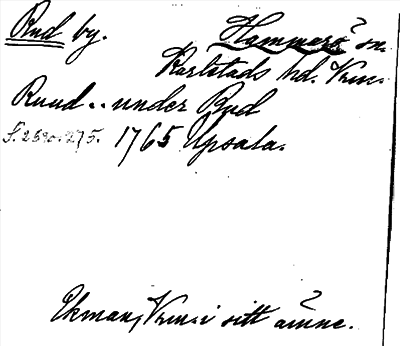 Rud by.
Hammarö sn.
Karlstads hd. Vrm.
Ruud .. under Rud
S. 2590. 275. 1765 Upsala.
Ekman, Vrm. i sitt ämne.